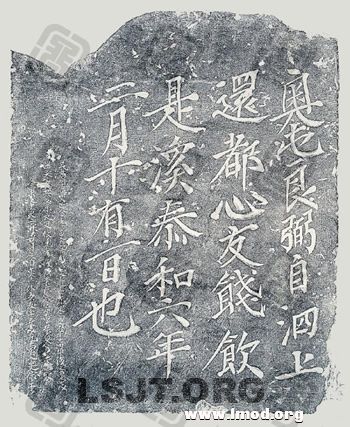 奧屯良弼自泗上
還都心友餞飲
是溪泰和六年
二月十有一日也
LSJT.ORG
www.lmod.org